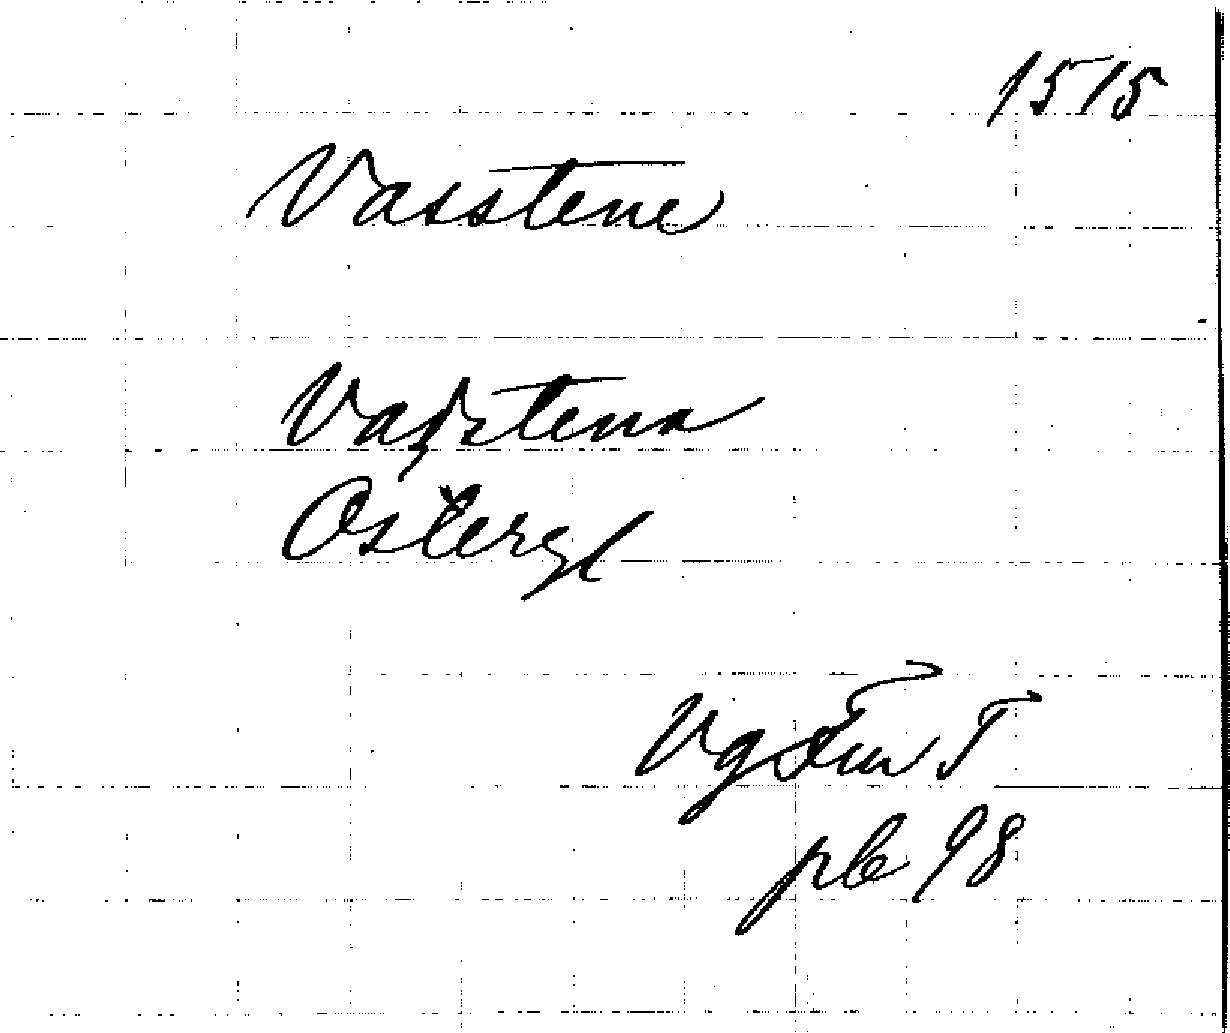 1515
Vasstene
Vadstena
Östergl
Vg Fur T
pb 98